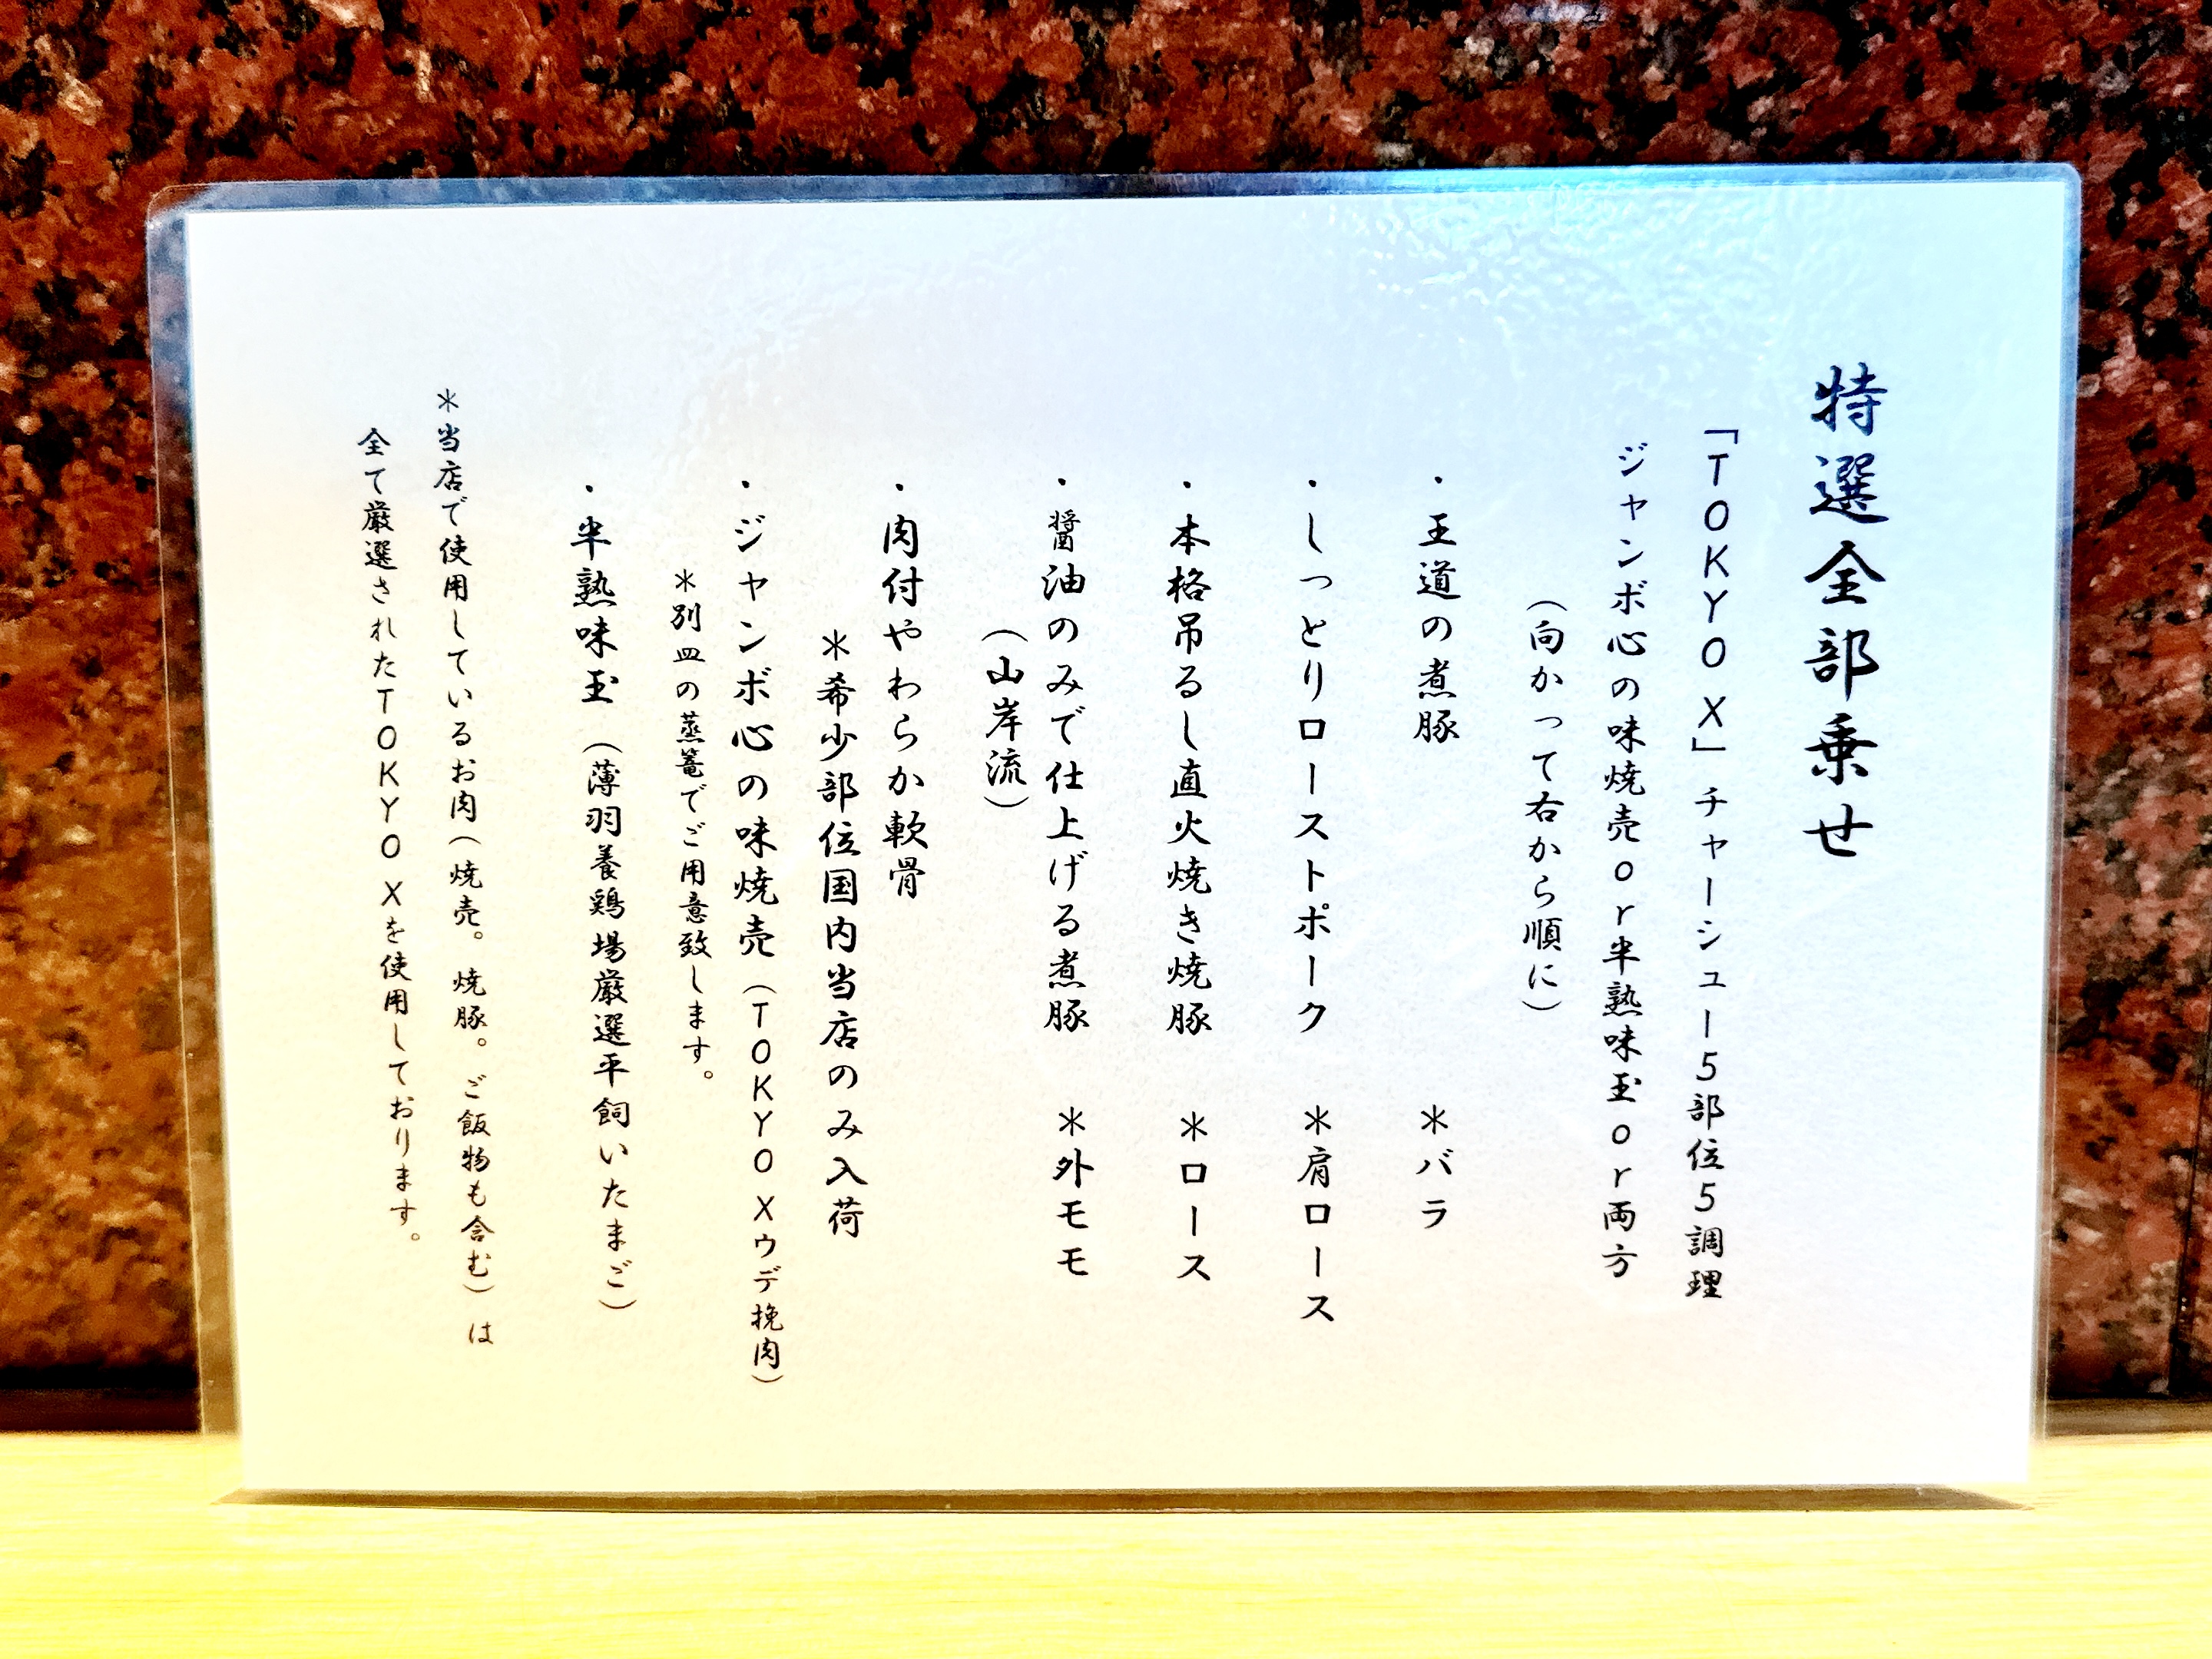 特選全部乗せ
「TOKYO X」チャーシュー5部位5調理
ジャンボ心の味焼売or半熟味玉or両方
（向かって右から順に）
・王道の煮豚　＊バラ
・しっとりローストポーク　＊肩ロース
・本格吊るし直火焼き焼豚　＊ロース
・醤油のみで仕上げる煮豚　＊外モモ
（山岸流）
・肉付やわらか軟骨
＊希少部位国内当店のみ入荷
・ジャンボ心の味焼売（TOKYO Xウデ挽肉）
＊別皿の蒸篭でご用意致します。
・半熟味玉（薄羽養鶏場厳選平飼いたまご）
＊当店で使用しているお肉（焼売。焼豚。ご飯物も含む）は
全て厳選されたTOKYO Xを使用しております。